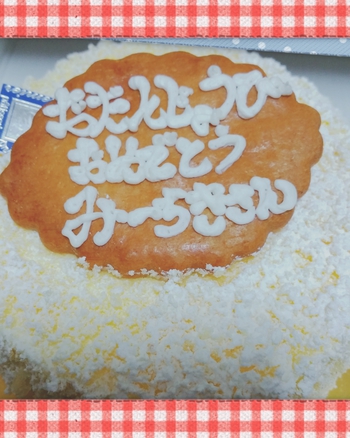 おたんじょうびー
おめでとう
みーちぎさん